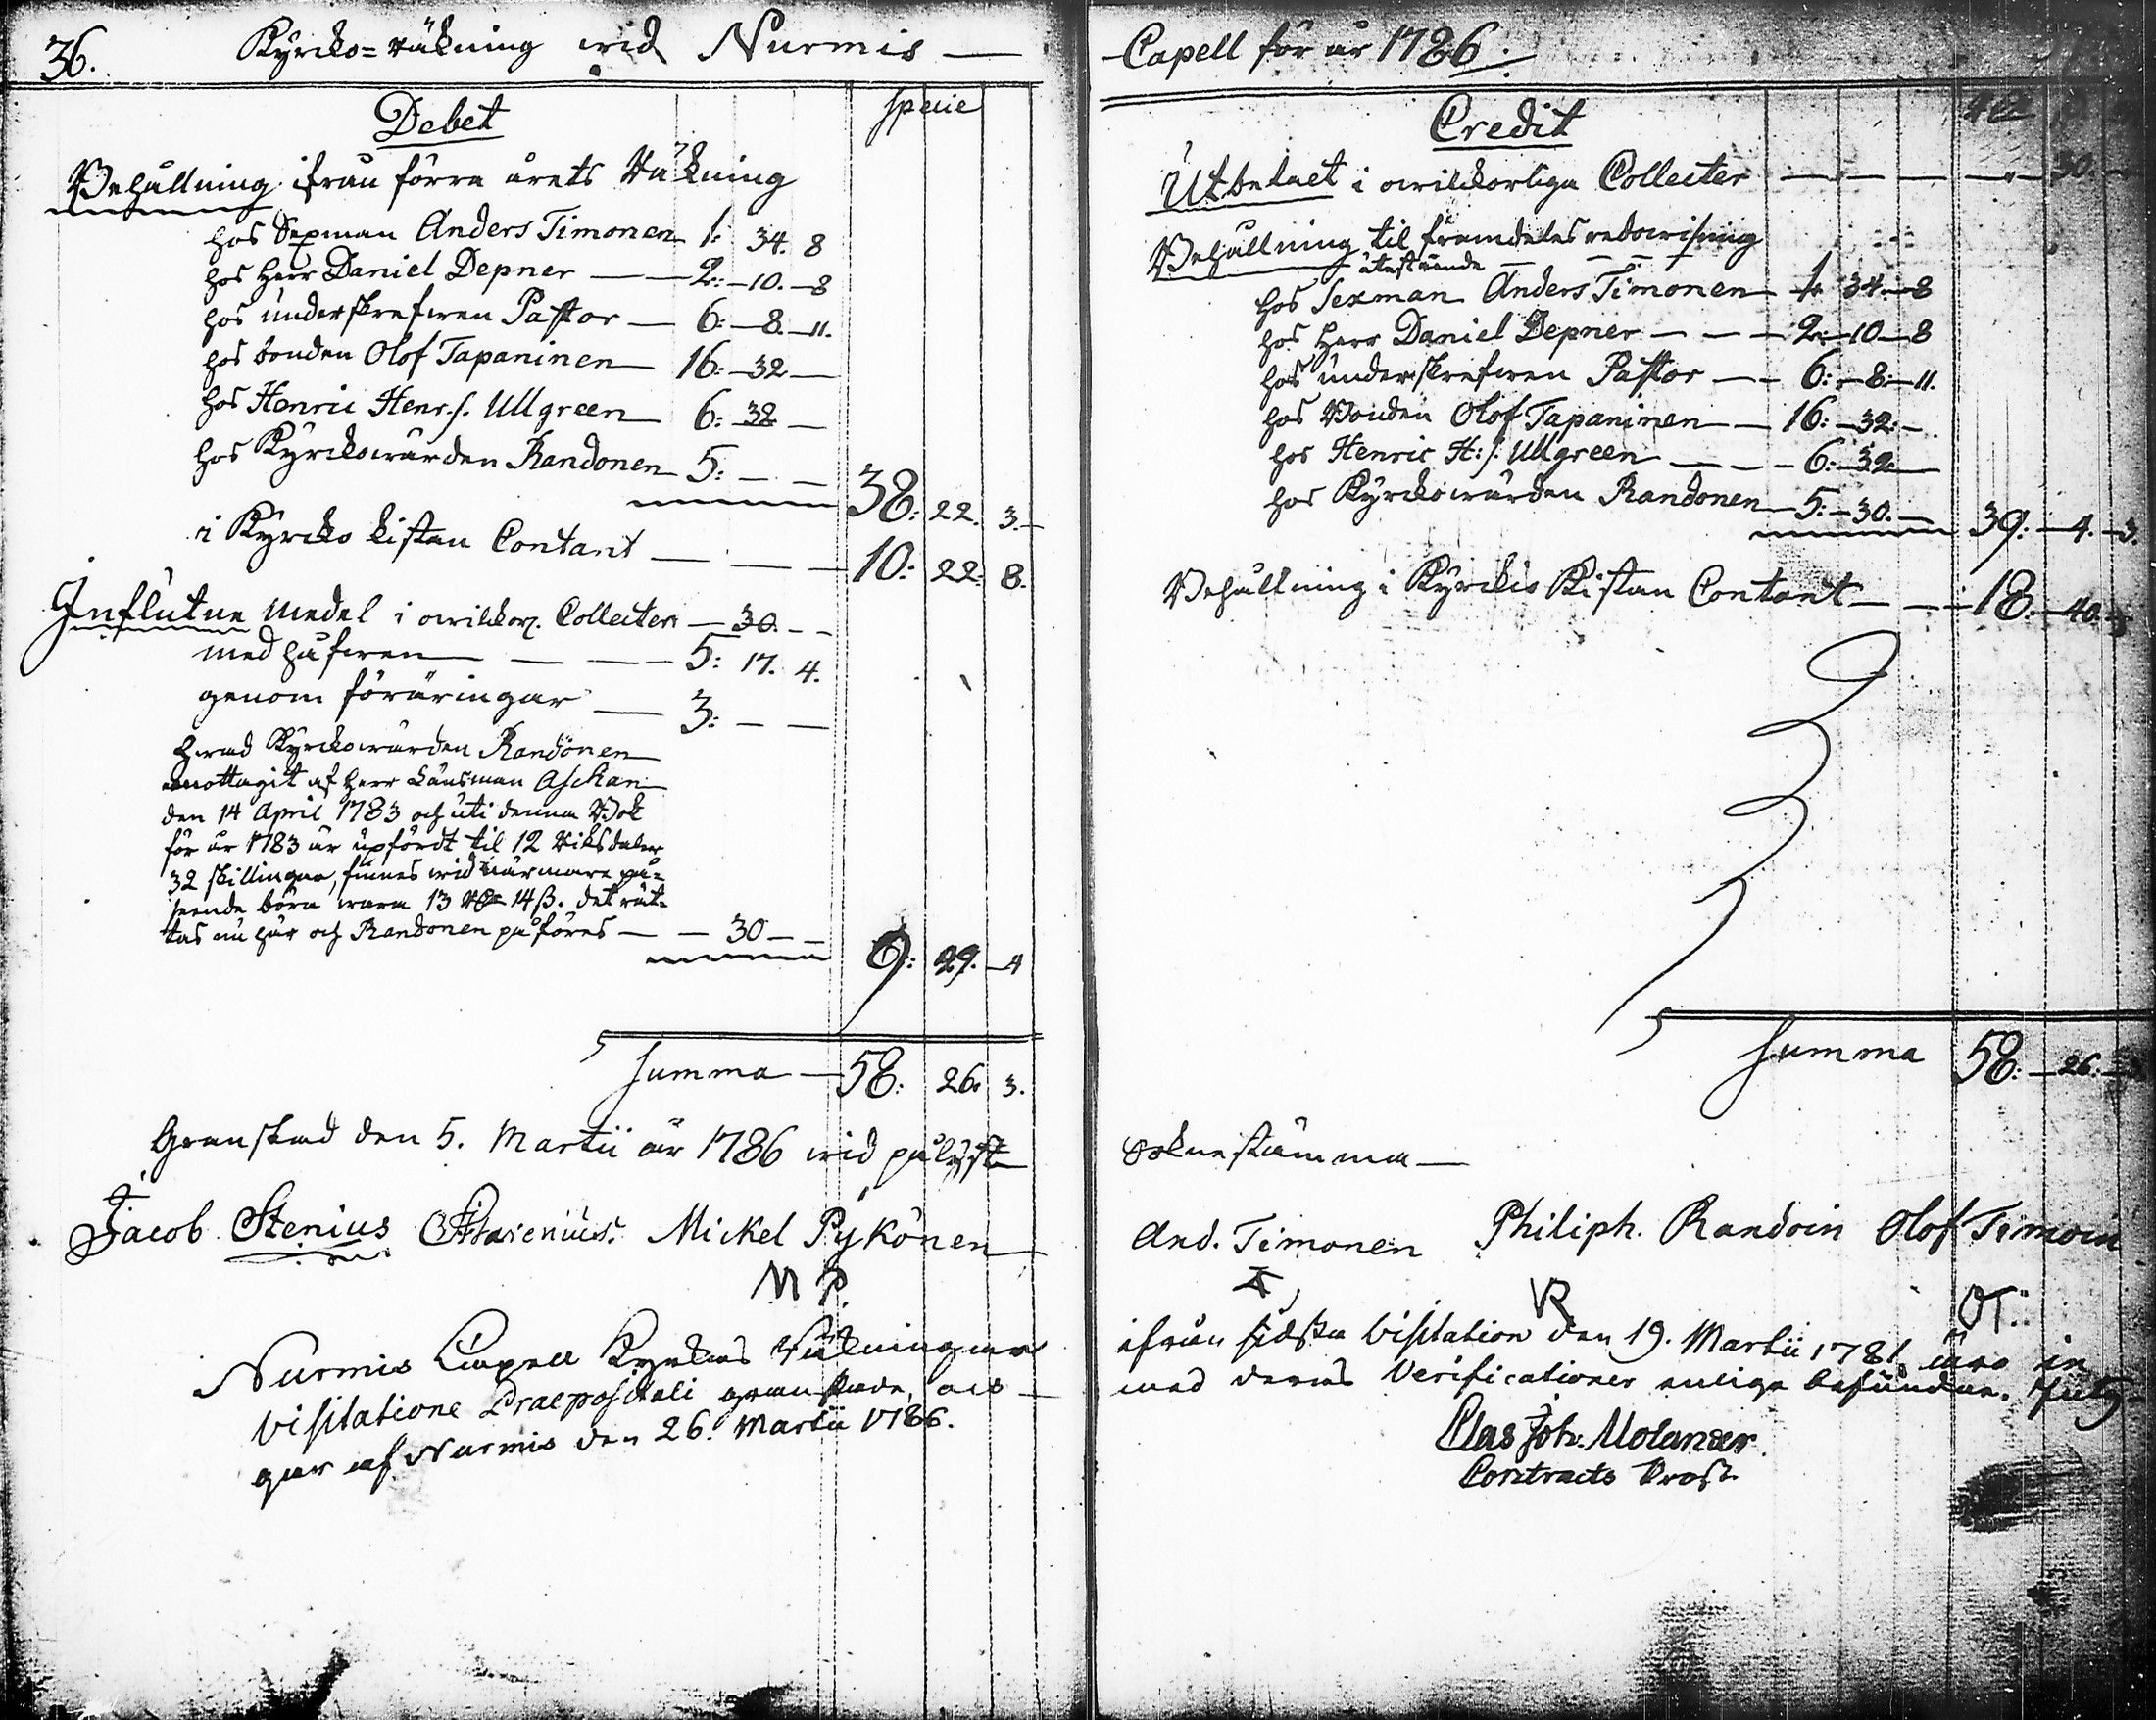 36. Kyrcko=räkning wid Nurmis —
Debet
specie
Behållning ifrån förra årets Räkning
hos Sexman Anders Timonen 1: 34. 8
hos Herr Daniel Depner — — 2: — 10. — 8
hos underskrefwen Pastor — 6: — 8. — 11.
hos bonden Olof Tapaninen — 16: — 32 —
hos Henric Henr.s. Ullgreen — 6: 32 —
hos Kyrckowärden Randonen 5: — — 38: 22. 3. —
i Kyrcko kistan Contant — — — 10: 22: 8.
Influtne medel i owilckor. Collecter — 30. — —
med håfwen — — — 5: 17. 4.
genom föräringar — 3: — —
Hwad Kyrckowärden Randonen
emottagit af Herr Länsman Aschan
den 14 April 1783 och uti denna Bok
för år 1783 är upfördt til 12 Riksdaler
32 skillingar, finnes wid närmare på=
seende böra wara 13 Rd 14 ß. det rät-
tas nu här och Randonen påföres — — 30 — — 9: 29. — 4
Summa — 58: 26. 3.
Granskad den 5. Martii år 1786 wid pålyst
Jacob Stenius Mickel Pykönen
M P.
Nurmis Capell Kyrkos Räkningar
visitatione Praepositali granskade,
gar af Nurmis den 26. Martii 1786.
Capell för år 1786.
Credit
Utbetalt i owilckorliga Collecter — — — — 30.
Behållning til framdeles redowisning
utestående
hos Sexman Anders Timonen 1: 34. — 8
hos Herr Daniel Depner — — — 2: — 10 — 8
hos underskrefwen Pastor — — 6: — 8: — 11.
hos Bonden Olof Tapaninen — 16: — 32: —
hos Henric H: s. Ullgreen — — — 6: — 32 —
hos Kyrckowärden Randonen — 5: — 30. — 39: — 4. — 3.
Behållning i Kyrcko Kistan Contant — — — 18. — 40.
Summa 58: — 26: —
Soknestämma —
And. Timonen Philiph. Randoin Olof Timoin
VR OT.
ifrån sidsta visitation den 19. Martii 1781. äro
med deras Verificationer enliga befundne.
Clas Joh: Molander
Contracts Prost.